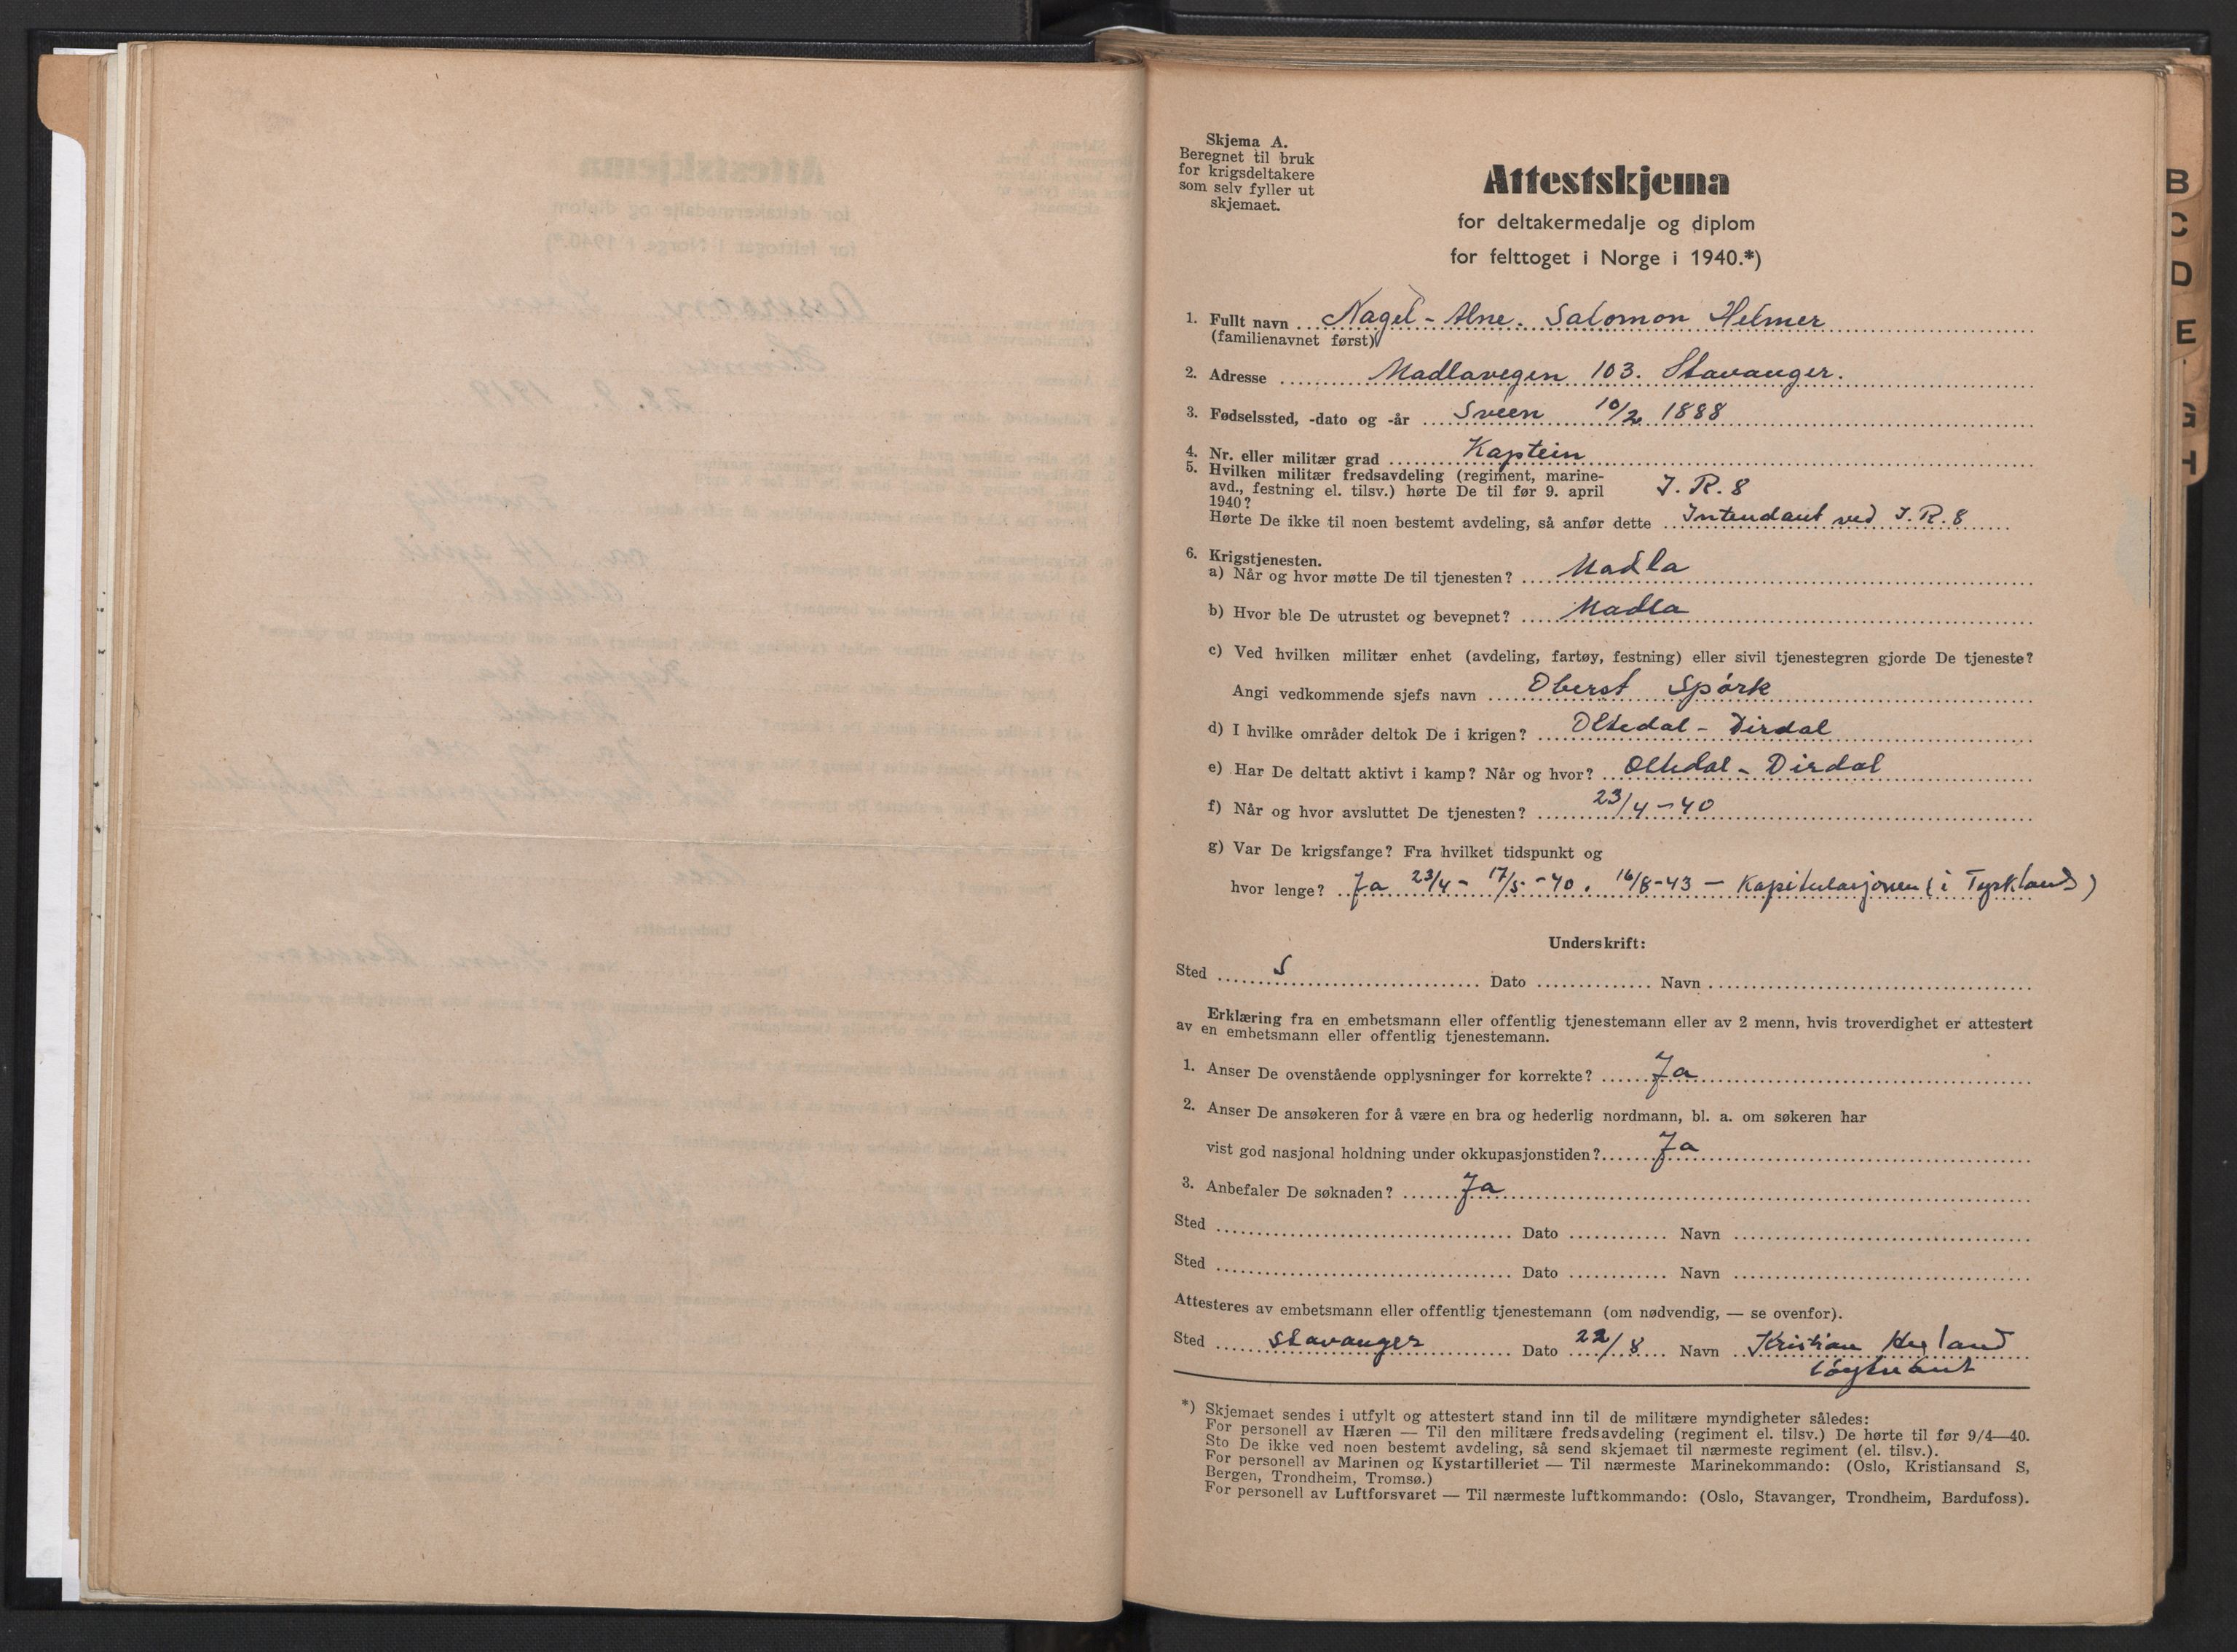 Skjema A.
Beregnet til bruk
for krigsdeltakere
som selv fyller ut
skjemaet.
Attestskjema
for deltakermedalje og diplom
for felttoget i Norge i 1940.*)
1. Fullt navn Nagel - Alne. Salomon Helmer
(familienavnet først)
2. Adresse Madlavegen 103. Stavanger.
3. Fødselssted, -dato og -år Sveen 10/2 1888
4. Nr. eller militær grad Kaptein
5. Hvilken militær fredsavdeling (regiment, marine-
avd., festning el. tilsv.) hørte De til før 9. april J. R. 8
1940?
Hørte De ikke til noen bestemt avdeling, så anfør dette Intendant ved J. R. 8
6. Krigstjenesten.
a) Når og hvor møtte De til tjenesten? Madla
b) Hvor ble De utrustet og bevepnet? Madla
c) Ved hvilken militær enhet (avdeling, fartøy, festning) eller sivil tjenestegren gjorde De tjeneste?
Angi vedkommende sjefs navn Oberst Spørk
d) I hvilke områder deltok De i krigen? Oltedal - Dirdal
e) Har De deltatt aktivt i kamp? Når og hvor? Oltedal - Dirdal
f) Når og hvor avsluttet De tjenesten? 23/4 - 40
g) Var De krigsfange? Fra hvilket tidspunkt og
hvor lenge? Ja 23/4 - 17/5 - 40. 16/8-43 - Kapitulasjonen (i Tyskland)
Underskrift:
Sted S Dato Navn
Erklæring fra en embetsmann eller offentlig tjenestemann eller av 2 menn, hvis troverdighet er attestert
av en embetsmann eller offentlig tjenestemann.
1. Anser De ovenstående opplysninger for korrekte? Ja
2. Anser De ansøkeren for å være en bra og hederlig nordmann, bl. a. om søkeren har
vist god nasjonal holdning under okkupasjonstiden? Ja
3. Anbefaler De søknaden? Ja
Sted Dato Navn
Sted Dato Navn
Attesteres av embetsmann eller offentlig tjenestemann (om nødvendig, — se ovenfor).
Sted Stavanger Dato 22/8 Navn Kristian
løytnant
*) Skjemaet sendes i utfylt og attestert stand inn til de militære myndigheter således:
For personell av Hæren — Til den militære fredsavdeling (regiment el. tilsv.) De hørte til før 9/4—40.
Sto De ikke ved noen bestemt avdeling, så send skjemaet til nærmeste regiment (el. tilsv.).
For personell av Marinen og Kystartilleriet — Til nærmeste Marinekommando: (Oslo, Kristiansand S,
Bergen, Trondheim, Tromsø.)
For personell av Luftforsvaret — Til nærmeste luftkommando: (Oslo, Stavanger, Trondheim, Bardufoss).
B
C
D
E
G
H